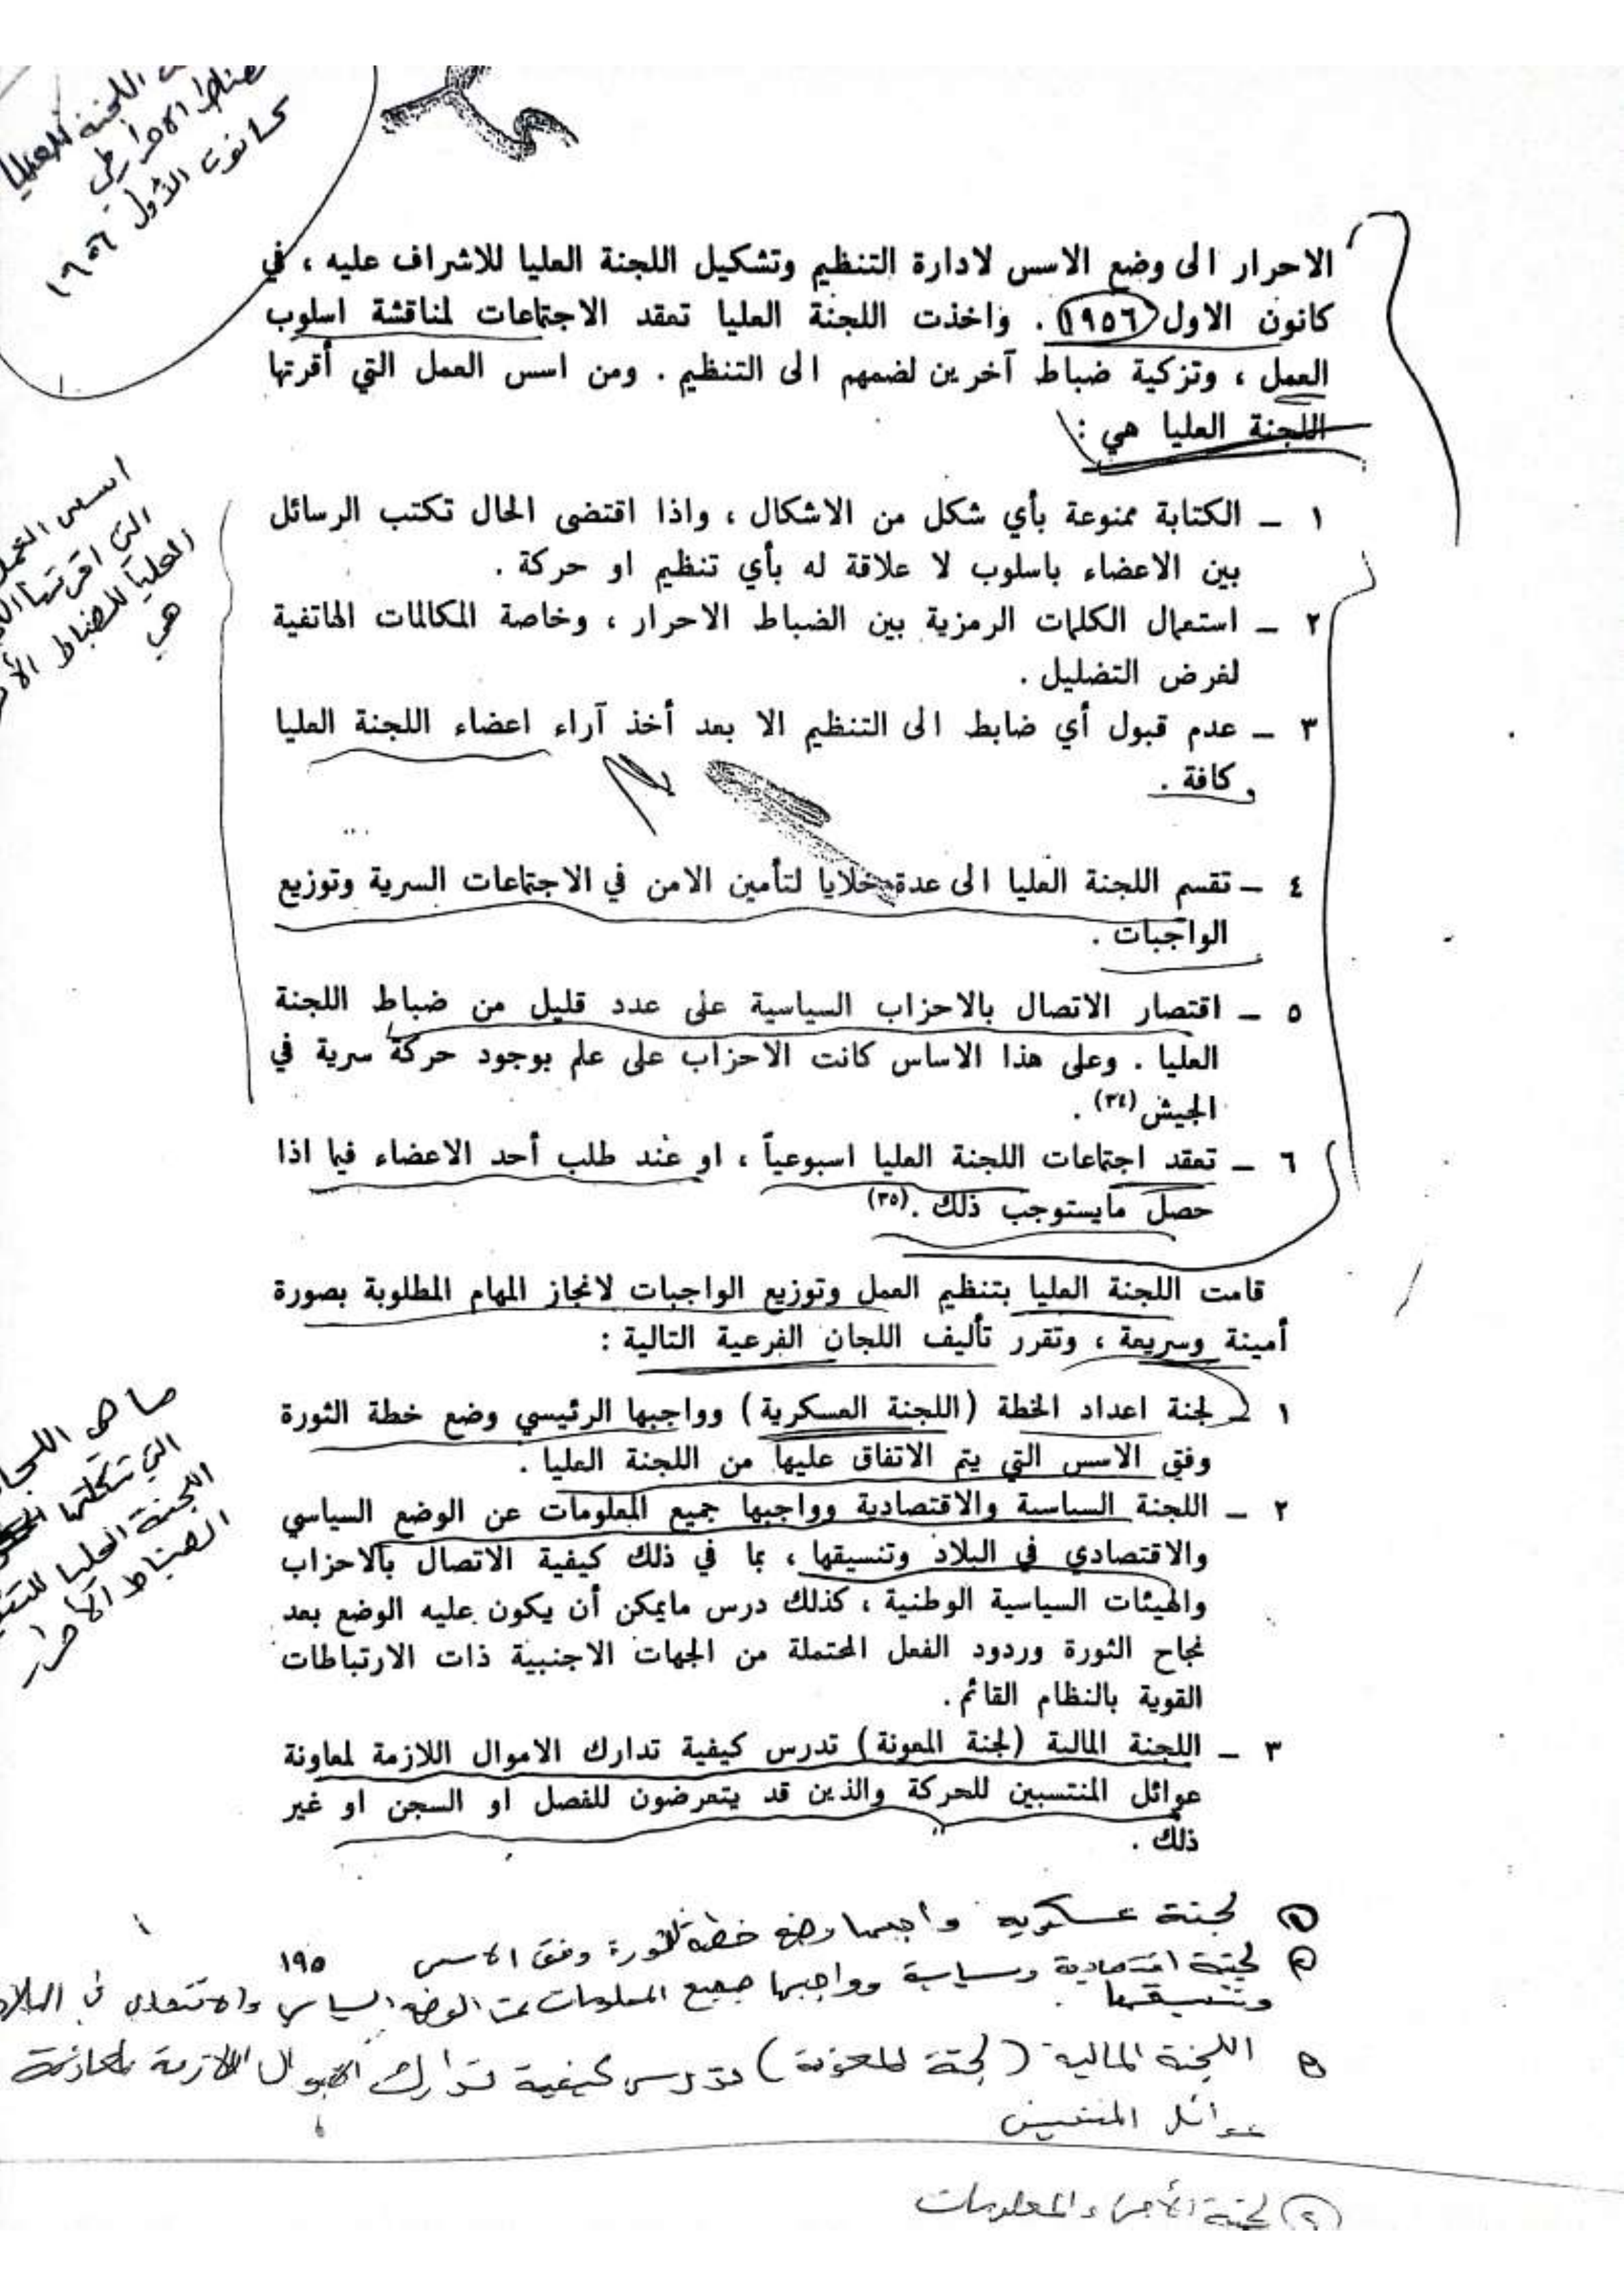 اللجنة العليا
كانون الأول ١٩٥٦
الاحرار الى وضع الاسس لادارة التنظيم وتشكيل اللجنة العليا للاشراف عليه ، في
كانون الاول ١٩٥٦ . واخذت اللجنة العليا تعقد الاجتماعات لمناقشة اسلوب
العمل ، وتزكية ضباط آخرين لضمهم الى التنظيم . ومن اسس العمل التي أقرتها
اللجنة العليا هي :
اسس العمل
التي اقرتها
العليا للضباط
هي
١ - الكتابة ممنوعة بأي شكل من الاشكال ، واذا اقتضى الحال تكتب الرسائل
بين الاعضاء باسلوب لا علاقة له بأي تنظيم او حركة .
٢ - استعمال الكلمات الرمزية بين الضباط الاحرار ، وخاصة المكالمات الهاتفية
لغرض التضليل .
٣ - عدم قبول أي ضابط الى التنظيم الا بعد أخذ آراء اعضاء اللجنة العليا
كافة .
٤ - تقسم اللجنة العليا الى عدة خلايا لتأمين الامن في الاجتماعات السرية وتوزيع
الواجبات .
٥ - اقتصار الاتصال بالاحزاب السياسية على عدد قليل من ضباط اللجنة
العليا . وعلى هذا الاساس كانت الاحزاب على علم بوجود حركة سرية في
الجيش (٣٤) .
٦ - تعقد اجتماعات اللجنة العليا اسبوعياً ، او عند طلب أحد الاعضاء فيما اذا
حصل مايستوجب ذلك . (٣٥)
قامت اللجنة العليا بتنظيم العمل وتوزيع الواجبات لانجاز المهام المطلوبة بصورة
أمينة وسريعة ، وتقرر تأليف اللجان الفرعية التالية :
ما هي
التي شكلتها
اللجنة العليا
الضباط الأحرار
١ - لجنة اعداد الخطة (اللجنة العسكرية) وواجبها الرئيسي وضع خطة الثورة
وفق الاسس التي يتم الاتفاق عليها من اللجنة العليا .
٢ - اللجنة السياسية والاقتصادية وواجبها جميع المعلومات عن الوضع السياسي
والاقتصادي في البلاد وتنسيقها ، بما في ذلك كيفية الاتصال بالاحزاب
والهيئات السياسية الوطنية ، كذلك درس مايمكن أن يكون عليه الوضع بعد
نجاح الثورة وردود الفعل المحتملة من الجهات الاجنبية ذات الارتباطات
القوية بالنظام القائم .
٣ - اللجنة المالية (لجنة المعونة) تدرس كيفية تدارك الاموال اللازمة لمعاونة
عوائل المنتسبين للحركة والذين قد يتعرضون للفصل او السجن او غير
ذلك .
١ لجنة عسكرية واجبها وضع خطة للثورة وفق الاسس ١٩٥
٢ لجنة اقتصادية وسياسية وواجبها جميع المعلومات عن الوضع السياسي والاقتصادي في البلاد
وتنسيقها
٣ اللجنة المالية (لجنة المعونة) تدرس كيفية تدارك الاموال اللازمة لمعاونة
عوائل المنتسبين